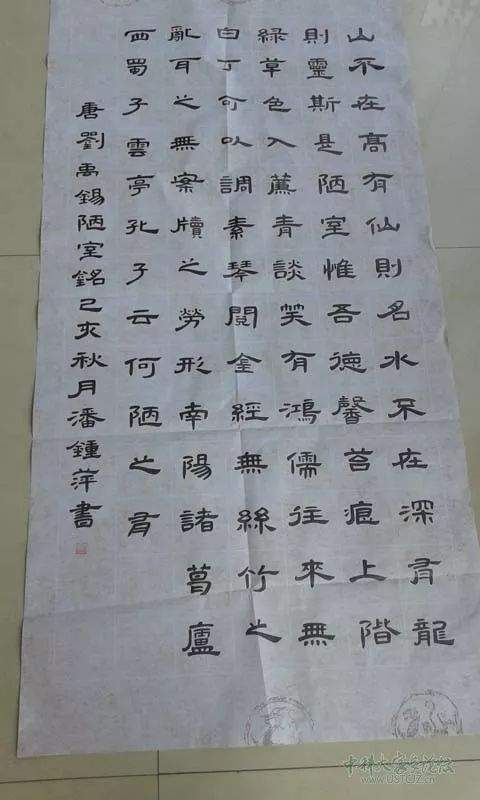 山不在高有仙則名水不在深有龍
則靈斯是陋室惟吾德馨苔痕上階
綠草色入簾青談笑有鴻儒往來無
白丁可以調素琴閱金經無絲竹之
亂耳之無案牘之勞形南陽諸葛廬
西蜀子雲亭孔子云何陋之有
唐劉禹錫陋室銘己亥秋月潘鍾萍書
中科大家长论坛
www.USTCJZ.cn